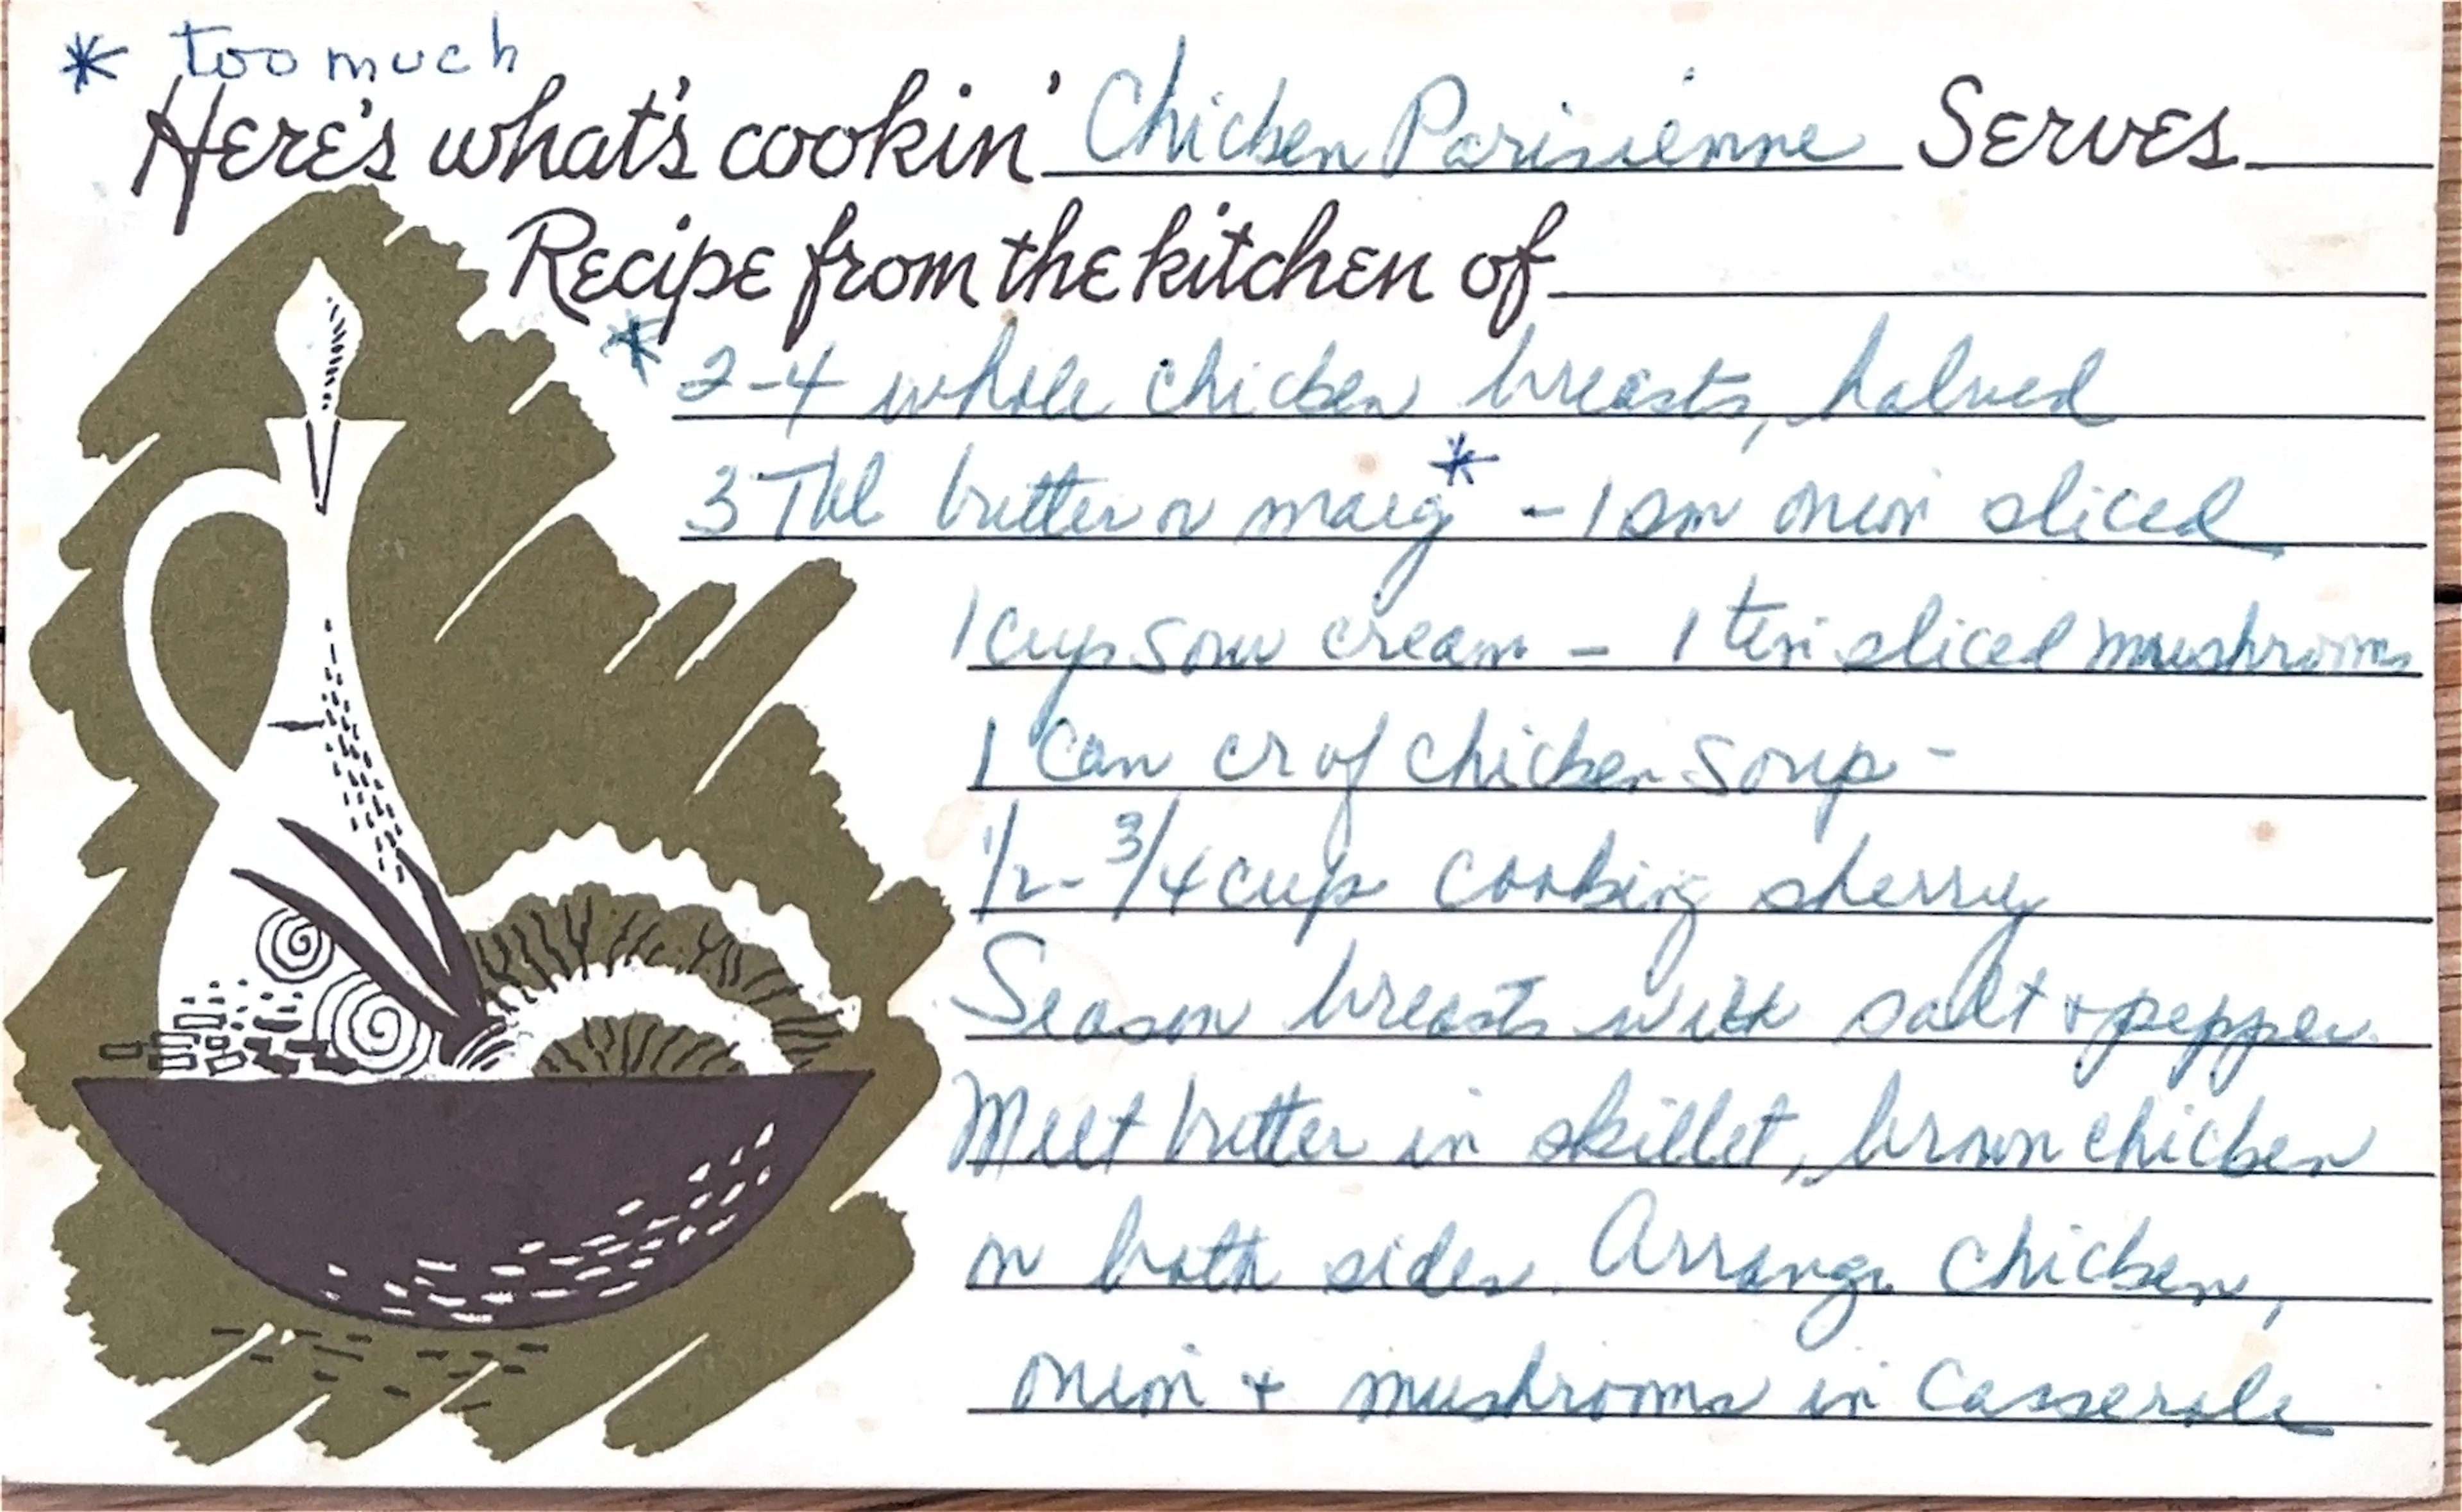 * too much
Here's what's cookin' Chicken Parisienne Serves
Recipe from the kitchen of
* 2-4 whole chicken breasts, halved
3 Tbl butter or marg* - 1 sm onion sliced
1 cup sour cream - 1 tin sliced mushrooms
1 can cr of chicken soup -
1/2 - 3/4 cup cooking sherry
Season breasts with salt + pepper.
Melt butter in skillet, brown chicken
on both sides. Arrange chicken,
onion + mushrooms in casserole